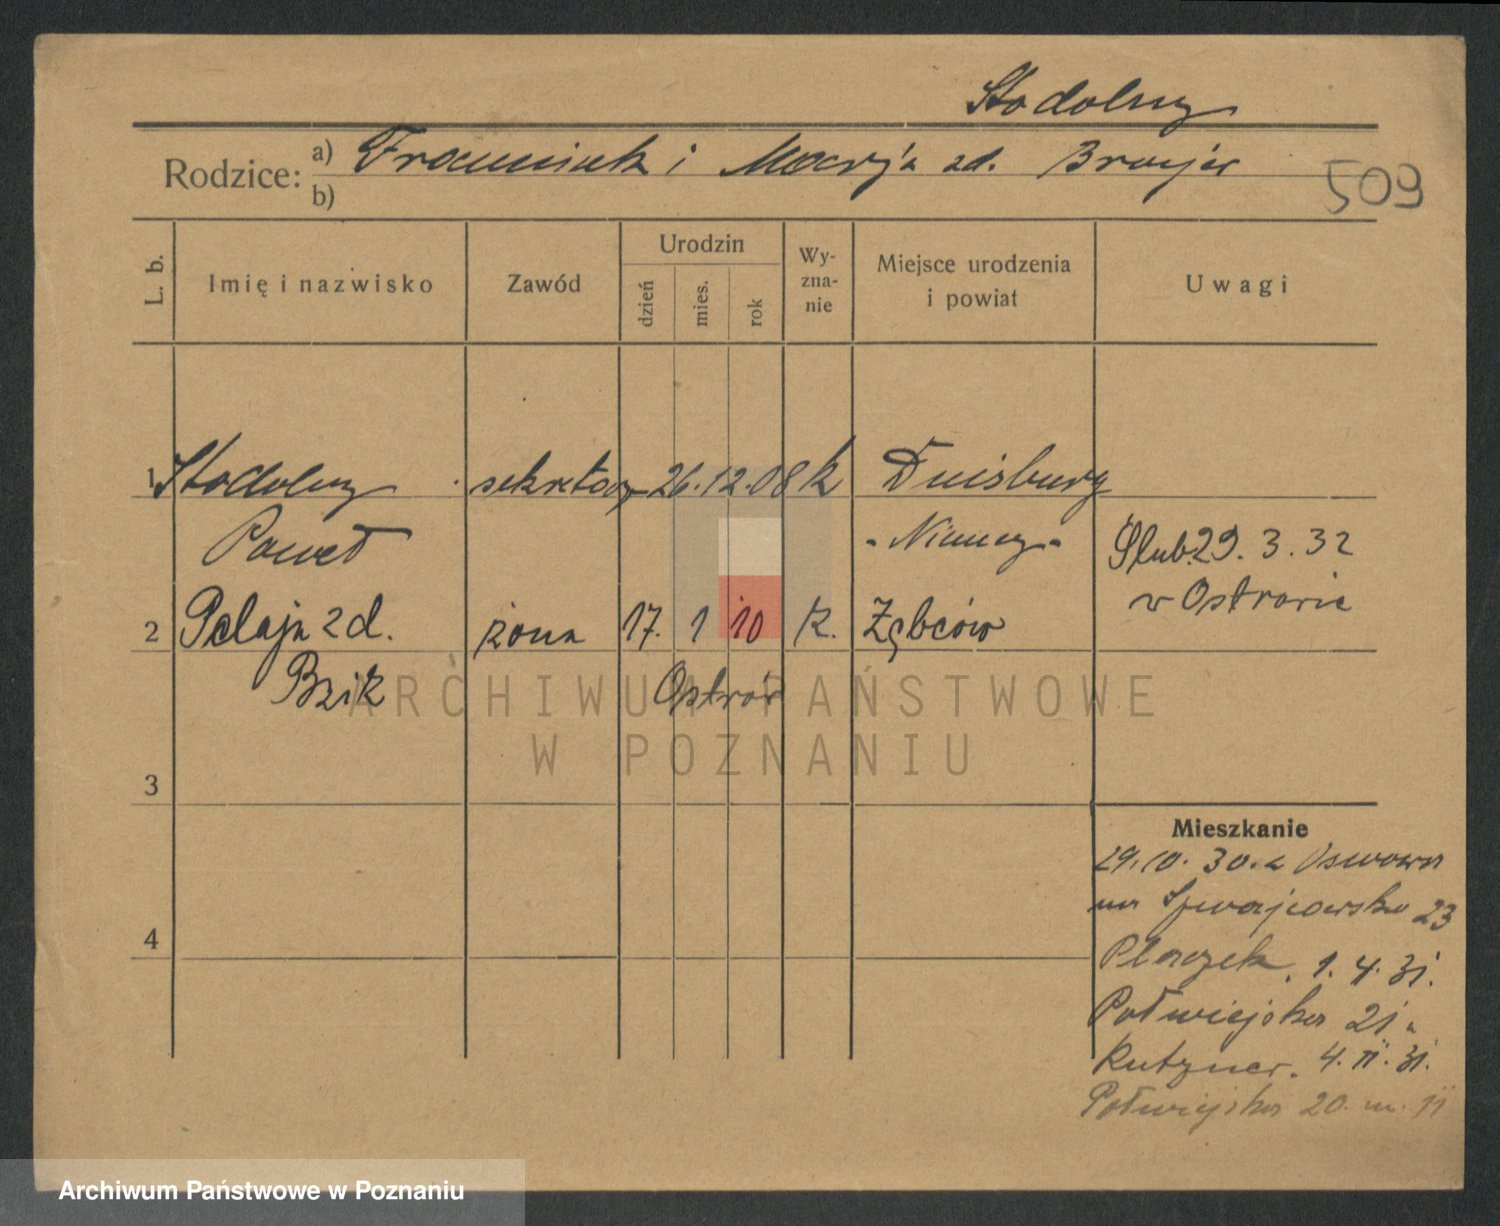 Stodolny
Rodzice: a) Franciszek i Marja zd. Brayer
b)
509
L. b. Imię i nazwisko Zawód Urodzin dzień mies. rok Wyznanie Miejsce urodzenia i powiat Uwagi
1 Stodolny sekretarz 26. 12. 08 k Duisburg
Paweł - Niemcy - Ślub 29. 3. 32
w Ostrowie
2 Pelaja zd. żona 17. 1 10 k. Zębców
Bzik Ostrów
ARCHIWUM PAŃSTWOWE
W POZNANIU
3
Mieszkanie
29. 10. 30. z
23
4
Placzek. 1. 4. 31.
Półwiejska 21
Kutzner. 4. 11. 31.
Półwiejska 20. m. 11
Archiwum Państwowe w Poznaniu